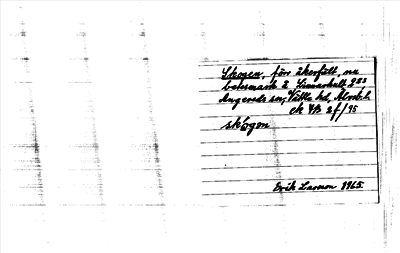 Skogen, förr åkerfält, nu
betesmark å Linnarhult 2¹³
Angereds sn, Vättle hd, Älvsb. l.
ek KB 2f/75
skógen
Erik Larsson 1965.